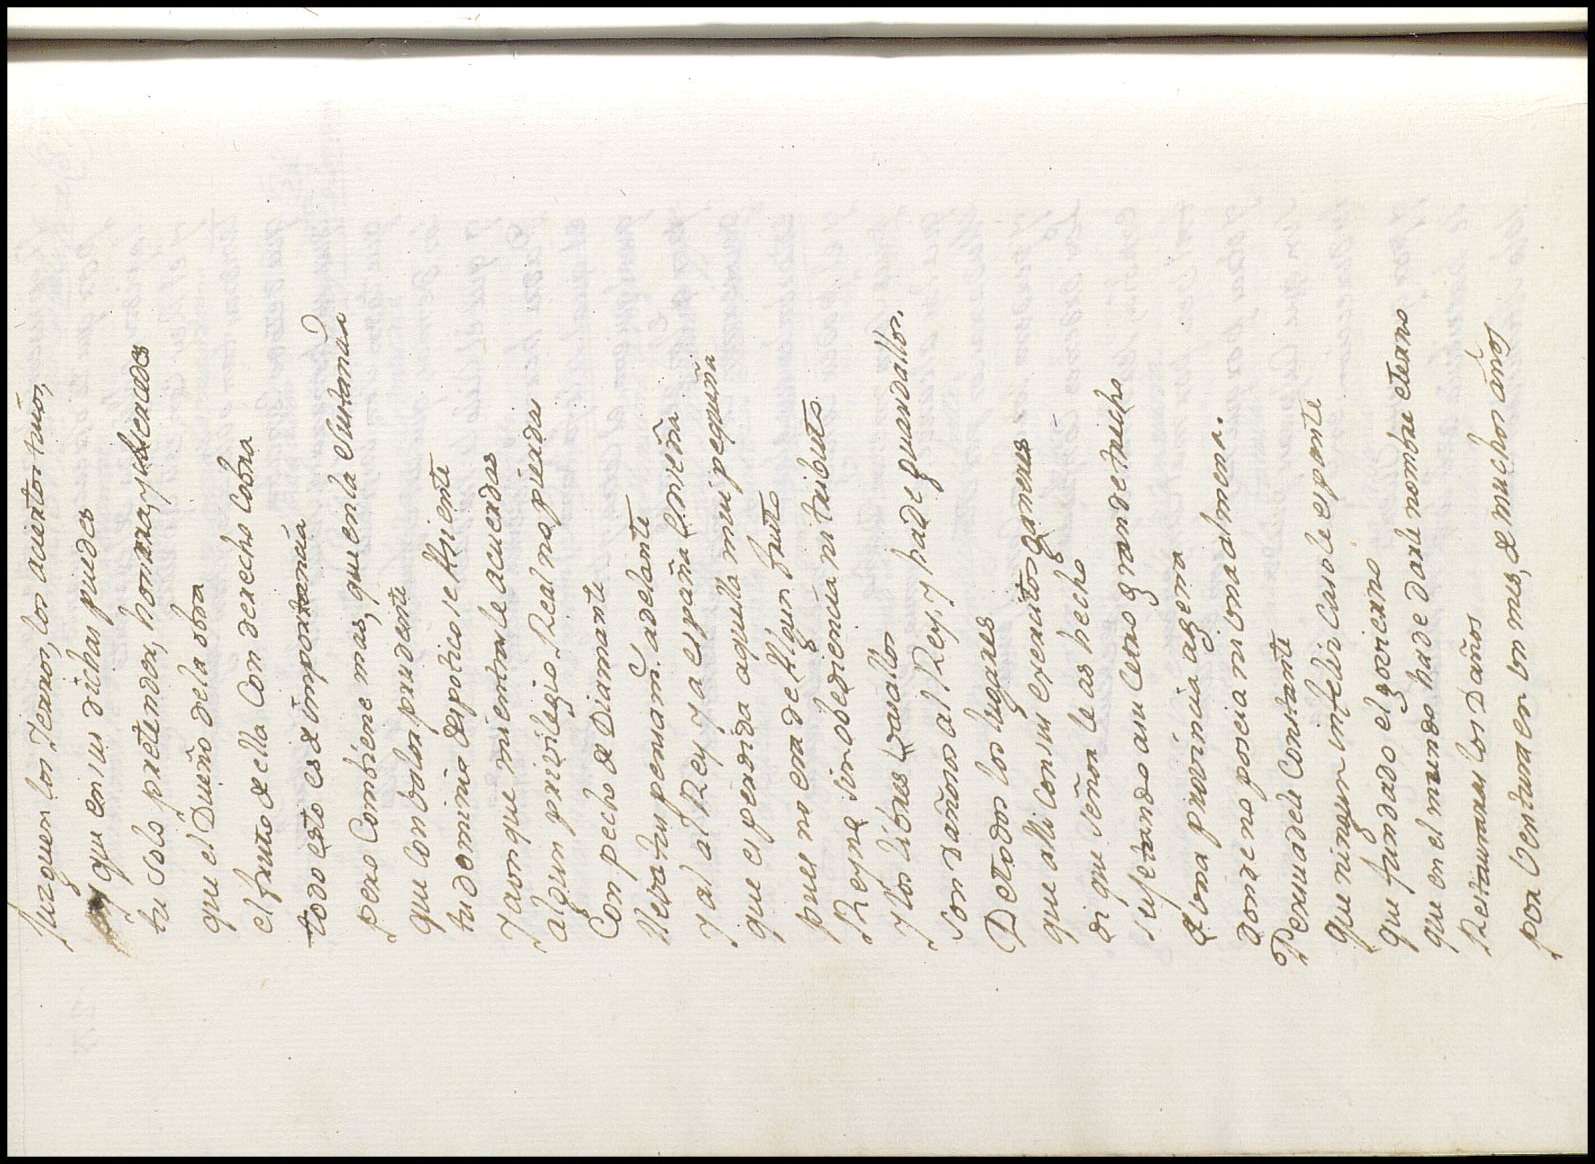 Juzguen los Yerros, los aciertos tuios,
y que en sus dichas puedes
tu solo pretender, honrra, y Mercedes
que el Dueño dela obra
el fruto de ella Con derecho Cobra
todo esto es de importancia
pero Combiene mas, que en la Sustancia
que con valor prudente
tu dominio despotico se Asiente
Y aunque mientra le acuerdas
algun privilegio Real no pierdas
Con pecho de Diamante
lleva tus pensam.tos adelante
Y al al Rey y a España Enseña
que es perdida aquella mui pequeña
pues no era de Algun fruto
Reyno sin obediencia ni tributo
Y los libres Vasallos
son dañosos al Rey, y ha de guardallos.
De todos los lugares
que alli con sus exercitos ganares
di que señorle as hecho
sujetando a su Cetro grande trecho
de una provincia agena
donde no poseia ni una almena.
Persuadele Constante
que ningun infeliz Caso le espante
que fundado el govierno
que en el mundo ha de darle nombre eterno
Restauraras los Daños
por Ventura en un mes, de muchos años